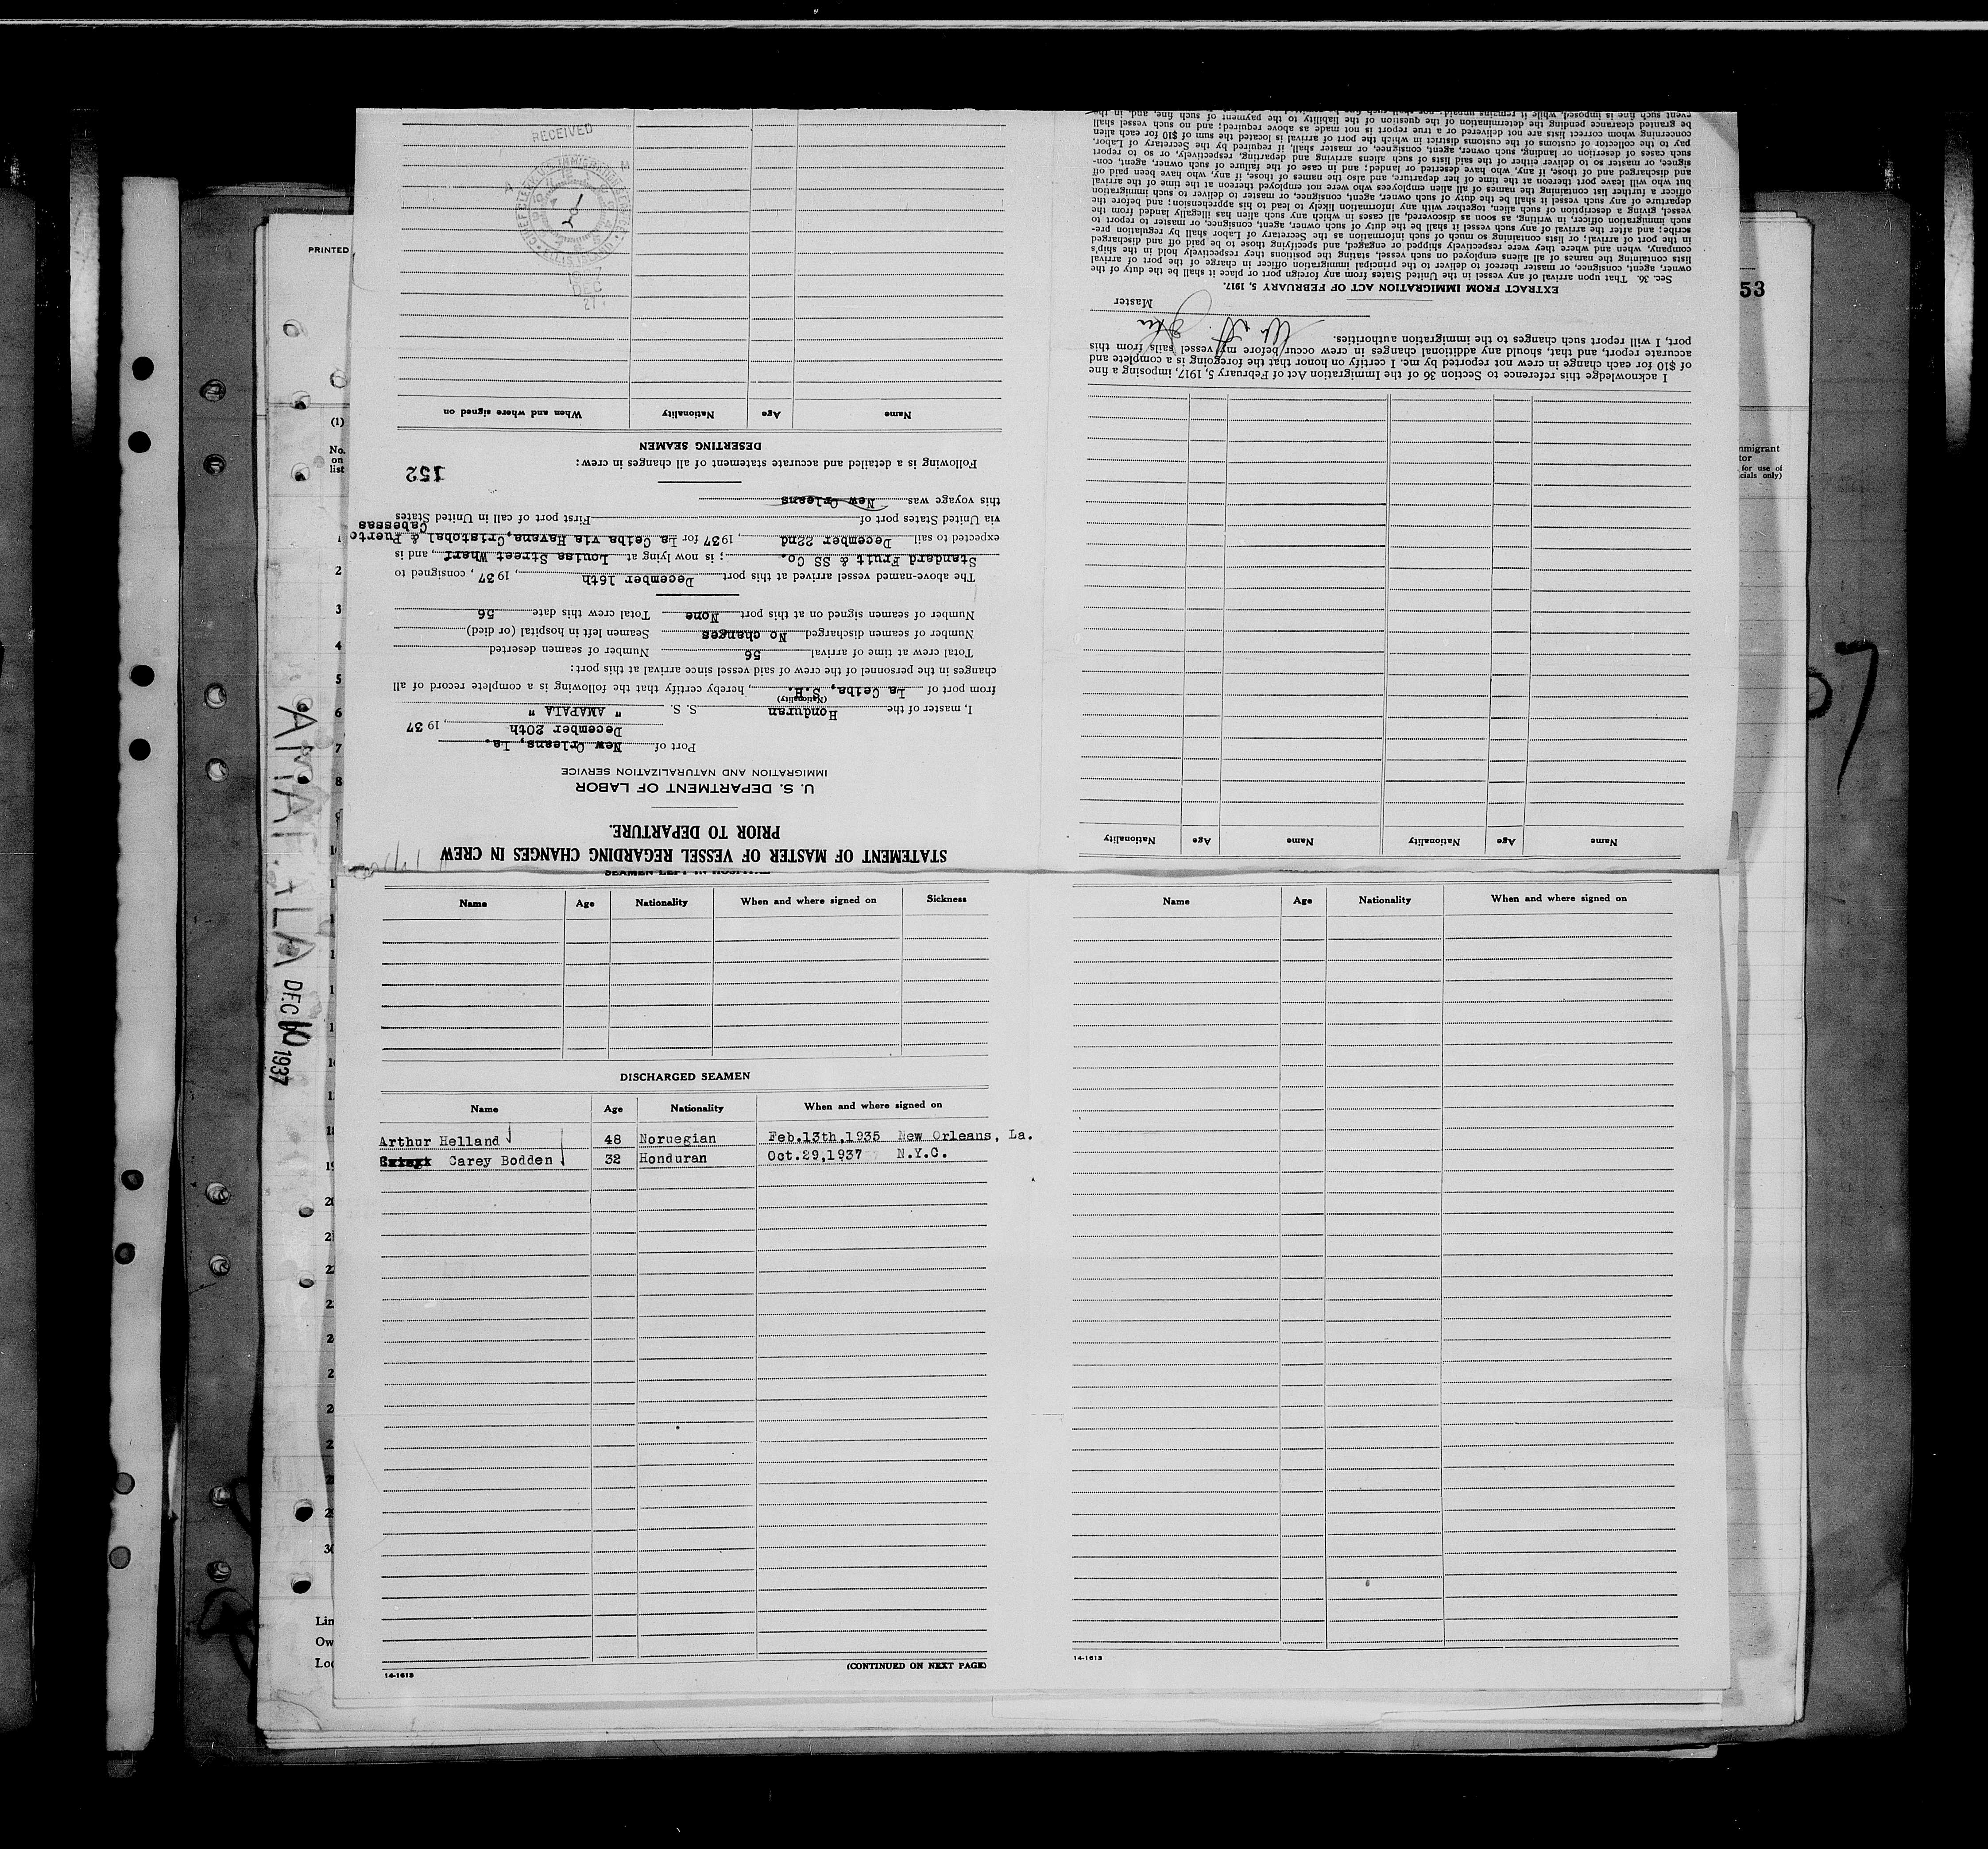 STATEMENT OF MASTER OF VESSEL REGARDING CHANGES IN CREW
PRIOR TO DEPARTURE.
U. S. DEPARTMENT OF LABOR
IMMIGRATION AND NATURALIZATION SERVICE
Port of New Orleans, La.
December 20th, 1937
I, master of the Honduran S. S. " AMAPALA "
(Nationality)
from port of La Ceiba, S.H., hereby certify that the following is a complete record of all
changes in the personnel of the crew of said vessel since arrival at this port:
Total crew at time of arrival 56 Number of seamen deserted
Number of seamen discharged No changes Seamen left in hospital (or died)
Number of seamen signed on at this port None Total crew this date 56
The above-named vessel arrived at this port December 16th, 1937, consigned to
Standard Fruit & SS Co. ; is now lying at Louisa Street Wharf, and is
expected to sail December 22nd, 1937 for La Ceiba via Havana, Cristobal & Puerto
Cabessas
via United States port of First port of call in United States
this voyage was New Orleans
Following is a detailed and accurate statement of all changes in crew:
152
DESERTING SEAMEN
Name Age Nationality When and where signed on
RECEIVED
DEC 27
Name Age Nationality Name Age Nationality
I acknowledge this reference to Section 36 of the Immigration Act of February 5, 1917, imposing a fine
of $10 for each change in crew not reported by me. I certify on honor that the foregoing is a complete and
accurate report, and that, should any additional changes in crew occur before my vessel sails from this
port, I will report such changes to the immigration authorities.
Master
EXTRACT FROM IMMIGRATION ACT OF FEBRUARY 5, 1917.
Sec. 36. That upon arrival of any vessel in the United States from any foreign port or place it shall be the duty of the
owner, agent, consignee, or master thereof to deliver to the principal immigration officer in charge of the port of arrival
lists containing the names of all aliens employed on such vessel, stating the positions they respectively hold in the ship's
company, when and where they were respectively shipped or engaged, and specifying those to be paid off and discharged
in the port of arrival; or lists containing so much of such information as the Secretary of Labor shall by regulation pre-
scribe; and after the arrival of any such vessel it shall be the duty of such owner, agent, consignee, or master to report to
such immigration officer, in writing, as soon as discovered, all cases in which any such alien has illegally landed from the
vessel, giving a description of such alien, together with any information likely to lead to his apprehension; and before the
departure of any such vessel it shall be the duty of such owner, agent, consignee, or master to deliver to such immigration
officer a further list containing the names of all alien employees who were not employed thereon at the time of the arrival
but who will leave port thereon at the time of her departure, and also the names of those, if any, who have been paid off
and discharged and of those, if any, who have deserted or landed; and in case of the failure of such owner, agent, con-
signee, or master so to deliver either of the said lists of such aliens arriving and departing, respectively, or so to report
such cases of desertion or landing, such owner, agent, consignee, or master, shall, if required by the Secretary of Labor,
pay to the collector of customs of the customs district in which the port of arrival is located the sum of $10 for each alien
concerning whom correct lists are not delivered or a true report is not made as above required; and no such vessel shall
be granted clearance pending the determination of the question of the liability to the payment of such fine, and, in the
event such fine is imposed, while it remains unpaid
SEAMEN LEFT IN HOSPITAL
Name Age Nationality When and where signed on Sickness
DISCHARGED SEAMEN
Name Age Nationality When and where signed on
Arthur Helland 48 Noruegian Feb.13th,1935 New Orleans, La.
Carey Bodden 32 Honduran Oct.29,1937 N.Y.C.
14-1613
(CONTINUED ON NEXT PAGE)
Name Age Nationality When and where signed on
14-1613
PRINTED
(1)
No.
on
list
1
2
3
4
5
6
7
8
AMAPALA DEC 1937
53